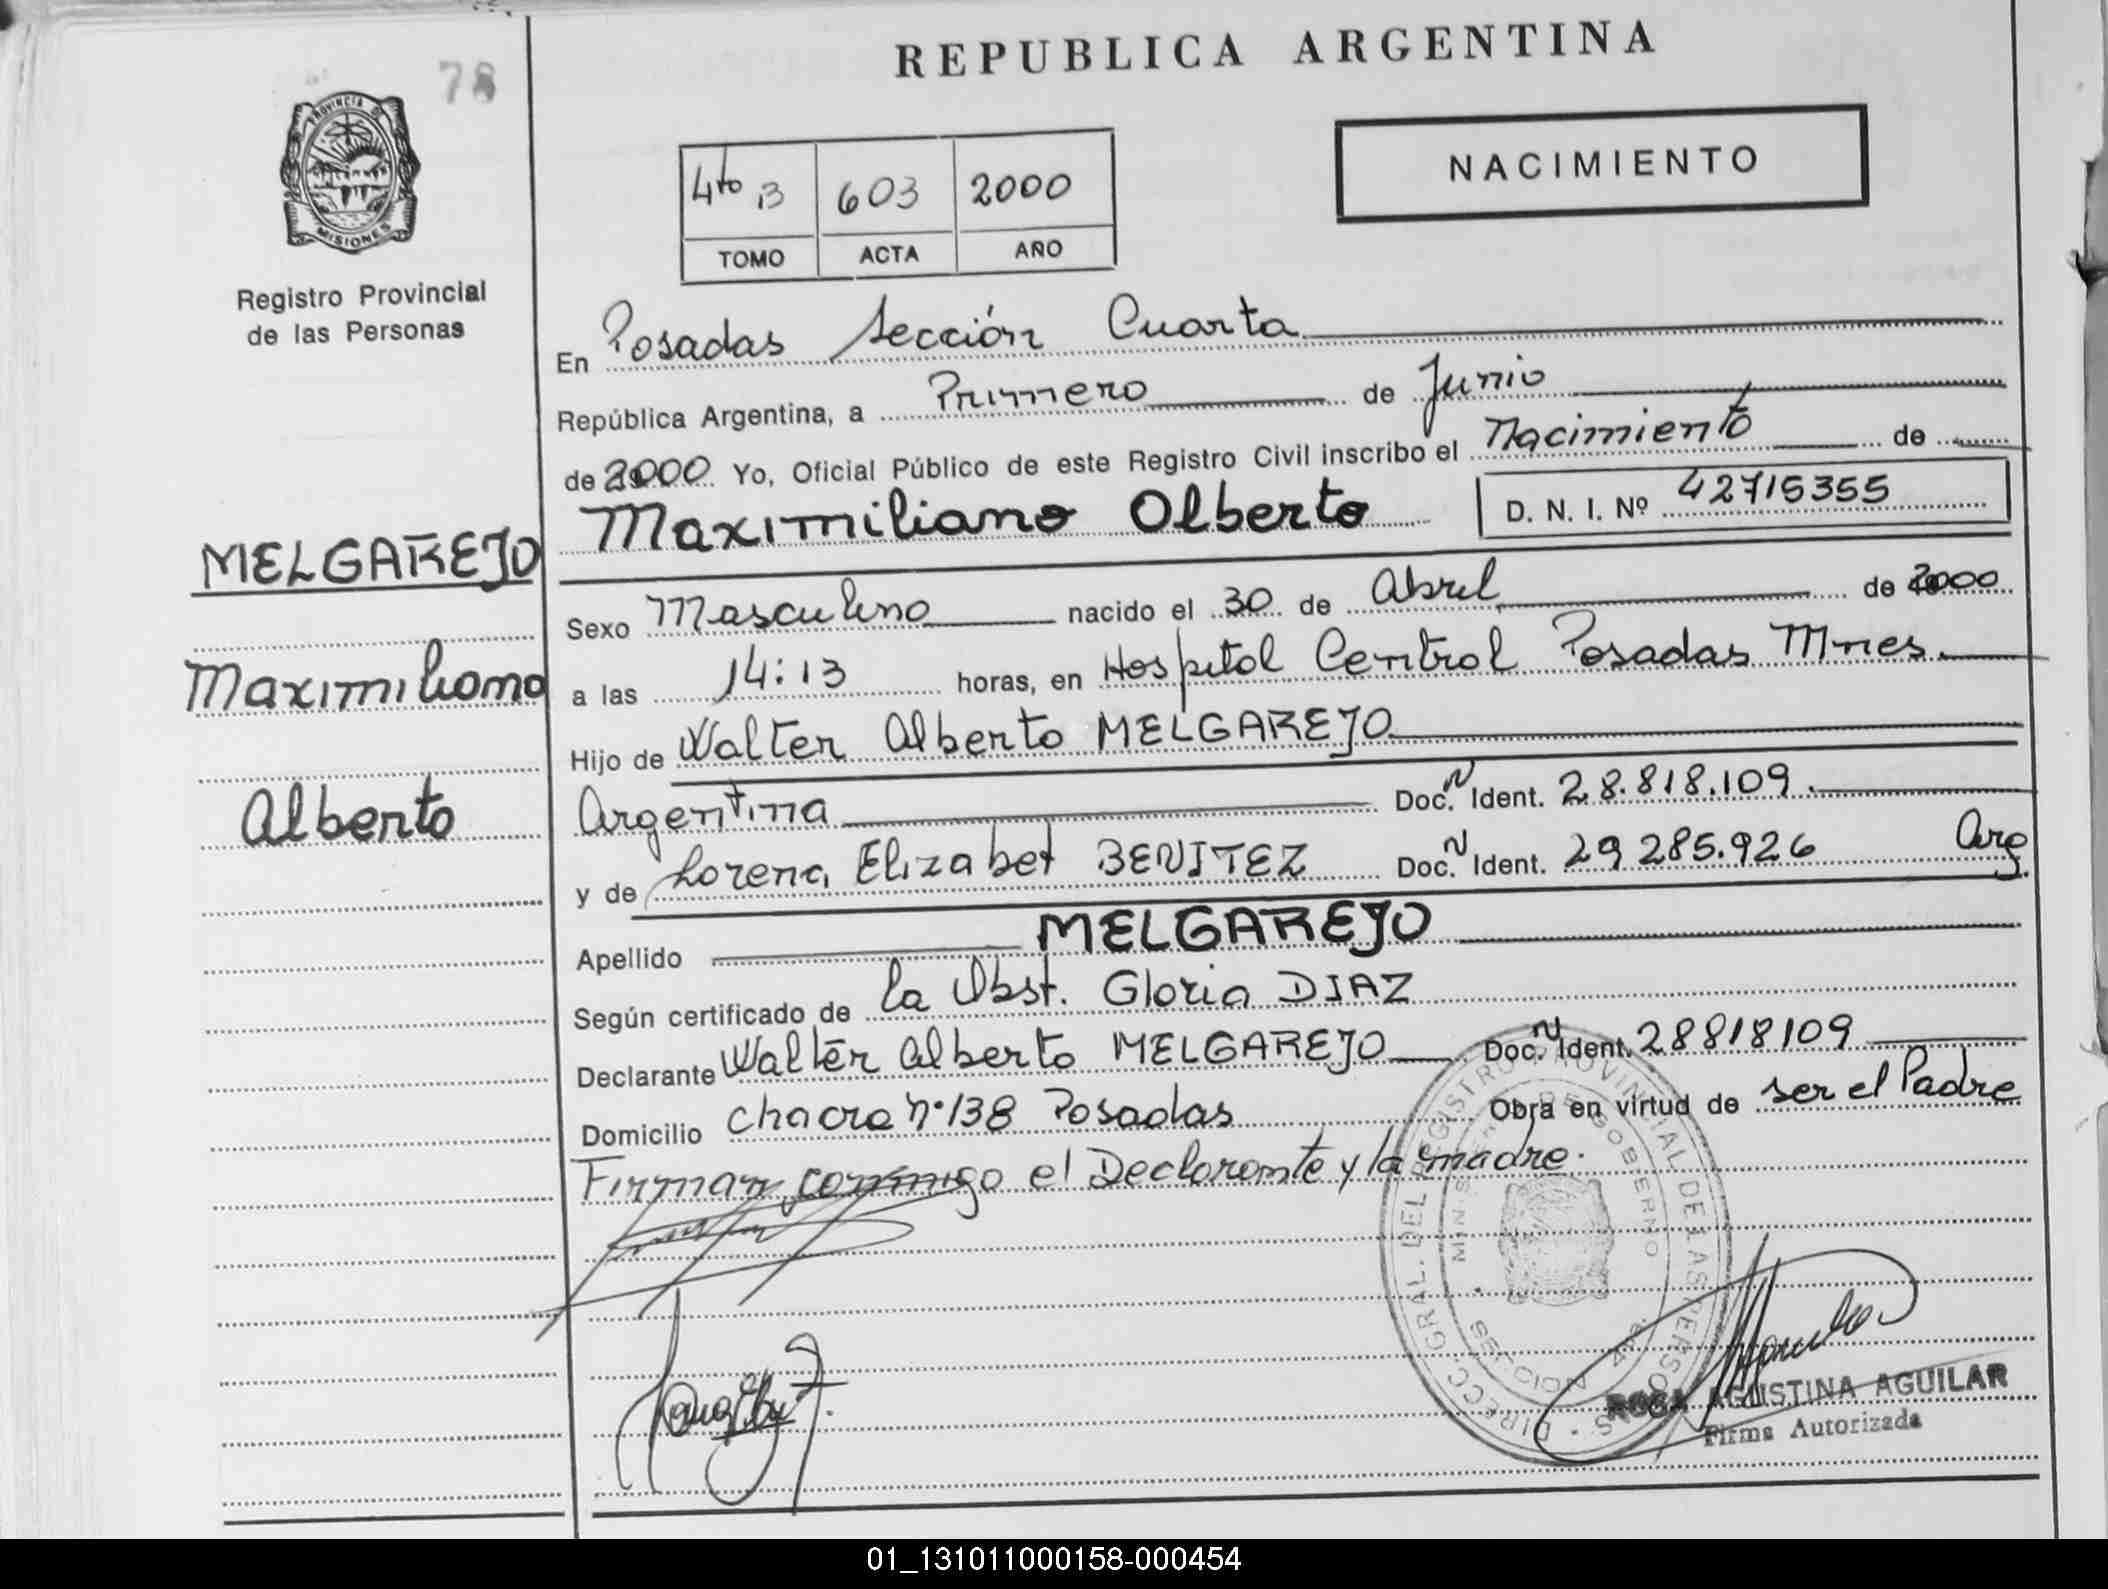 REPUBLICA ARGENTINA
78
PROVINCIA DE
MISIONES
Registro Provincial
de las Personas
NACIMIENTO
4to B 603 2000
TOMO ACTA AÑO
En Posadas Sección Cuarta
República Argentina, a Primero de Junio
de 2000 Yo, Oficial Público de este Registro Civil inscribo el Nacimiento de
Maximiliano Alberto D. N. I. Nº 42715355
MELGAREJO
Maximiliano
Alberto
Sexo Masculino nacido el 30 de Abril de 2000
a las 14:13 horas, en Hospital Central Posadas Mnes.
Hijo de Walter Alberto MELGAREJO
Argentina Doc. N Ident. 28.818.109.
y de Lorena Elizabet BENITEZ Doc. N Ident. 29 285.926 Arg.
Apellido MELGAREJO
Según certificado de la Obst. Gloria DIAZ
Declarante Walter Alberto MELGAREJO Doc. N Ident. 28818109
Domicilio Chacra Nº 138 Posadas Obra en virtud de ser el Padre
Firman conmigo el Declarante y la madre.
DIRECC. GRAL. DEL REGISTRO PROVINCIAL DE LAS PERSONAS
MINISTERIO DE GOBIERNO
ROSA AGUSTINA AGUILAR
Firma Autorizada
01_131011000158-000454